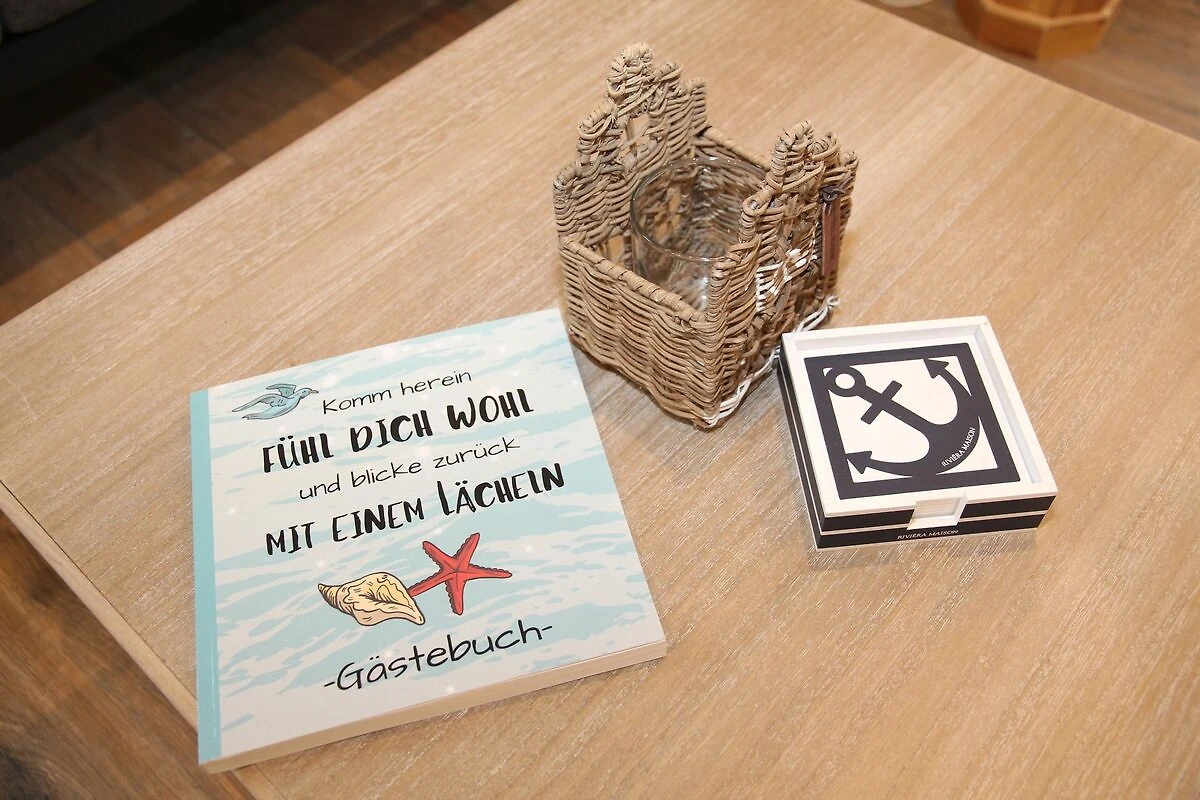 Komm herein
FÜHL DICH WOHL
und blicke zurück
MIT EINEM LÄCHELN
-Gästebuch-
RIVIÈRA MAISON
RIVIÈRA MAISON